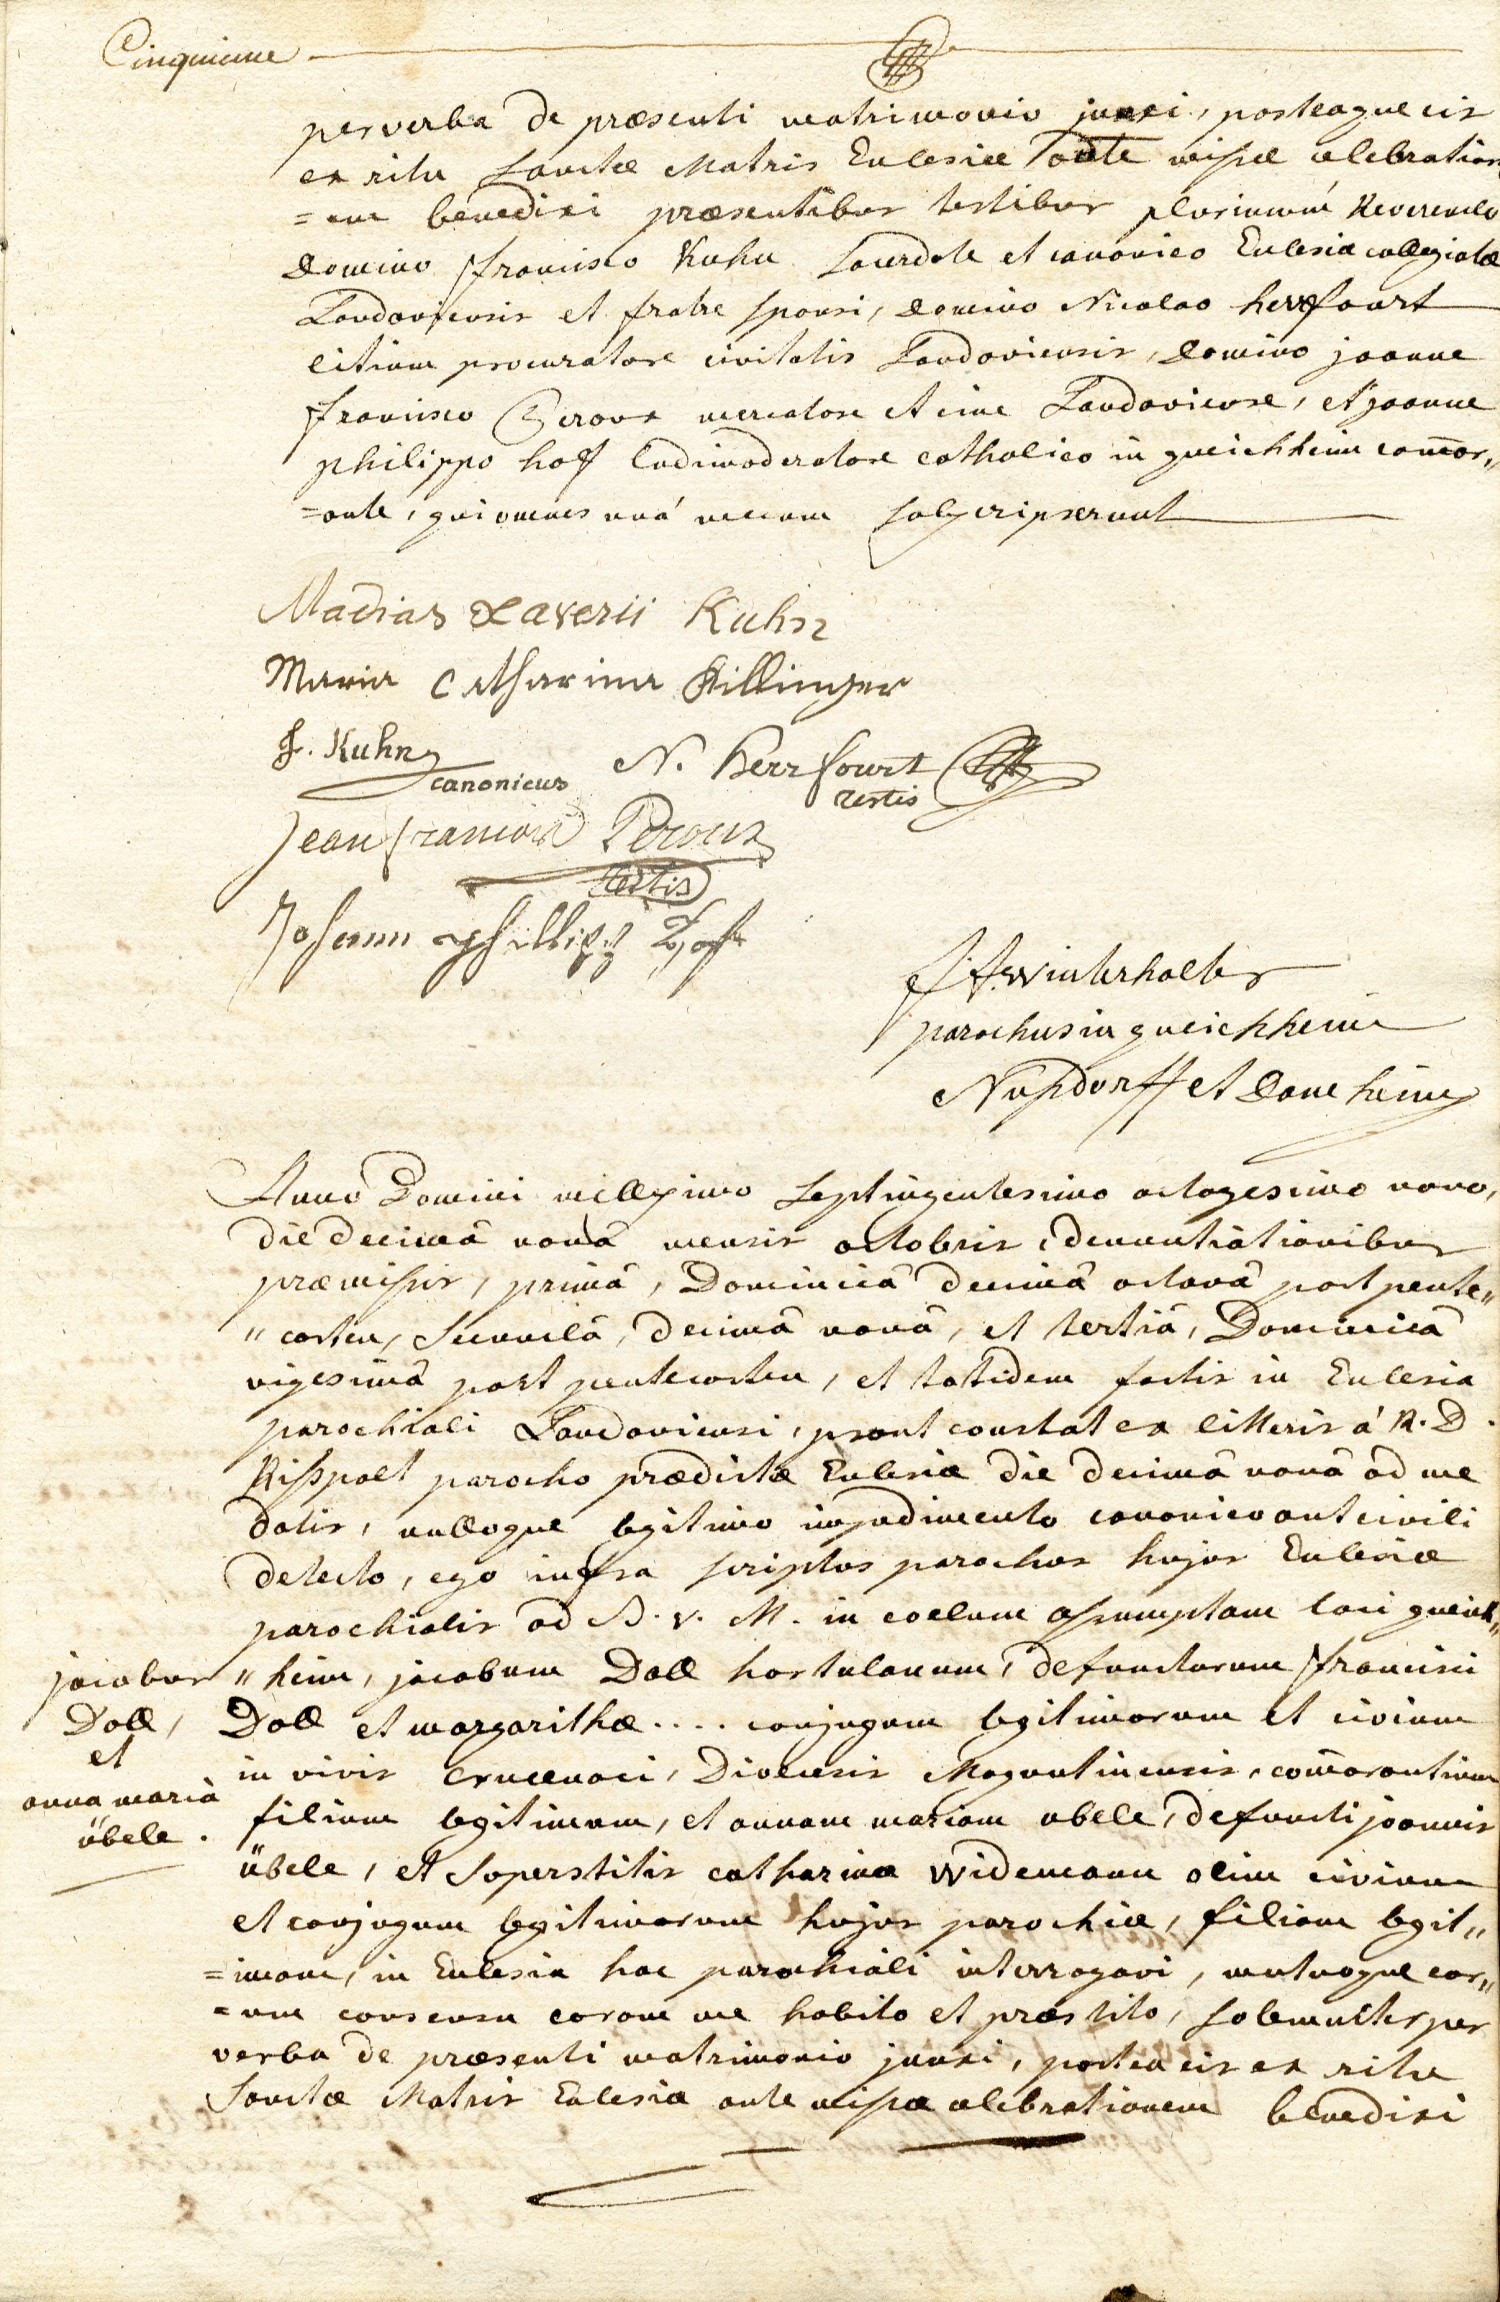 Cinquieme
per verba de præsenti matrimonio junxi, posteaque eis
ex ritu Sanctæ Matris Ecclesiæ ante missæ celebration
=em benedixi præsentibus testibus plurimum Reverendo
Domino francisco Kuhn Sacerdote et canonico Ecclesiæ collegiatæ
Landaviensis et fratre sponsi, Domino Nicolao herrfourt
litium procuratore civitatis Landaviensis, Domino joanne
francisco Peroux mercatore et cive Landaviense, et joanne
philippo hoff ludimoderatore catholico in queichheim com̄or„
=ante, qui omnes unà mecum subscripserunt
Madias Xaverii Kuhn
Maria Catharina Killinger
f. Kuhn canonicus N. herrfourt testis
Jean francois Peroux
testis
Johann Phillipp Hoff
f. A. Winterhalter
parochus in queichheim
Nussdorff et Damheim
Anno Domini millesimo Septingentesimo octogesimo nono,
die decimâ nonâ mensis octobris, denuntiationibus
præmissis, primâ, Dominicâ decimâ octavâ post pente„
„costen, Secundâ, decimâ nonâ, et tertiâ, Dominicâ
vigesimâ post pentecosten, et totidem factis in Ecclesia
parochiali Landaviensi, prout constat ex litteris à R. D.
Risspalt parocho prædictæ Ecclesiæ die decimâ nonâ ad me
datis, nulloque legitimo impedimento canonico aut civili
detecto, ego infra scriptus parochus hujus Ecclesiæ
parochialis ad B. V. M. in coelum assumptam loci queich„
„heim, jacobum Doll hortulanum, defunctorum francisci
Doll et margarithæ .... conjugum legitimorum et civium
in vivis crucenaci, Dioecesis Moguntinensis, com̄orantium
filium legitimum, et annam mariam ubele, defuncti joannis
übele, et Superstitis catharinæ Widemann olim civium
et conjugum legitimorum hujus parochiæ, filiam legit„
=imam, in Ecclesia hac parochiali interrogavi, mutuoque eor„
=um consensu coram me habito et præstito, solemniter per
verba de præsenti matrimonio junxi, postea eis ex ritu
Sanctæ Matris Ecclesiæ ante missæ celebrationem benedixi
jacobus
Doll,
et
anna maria
übele.